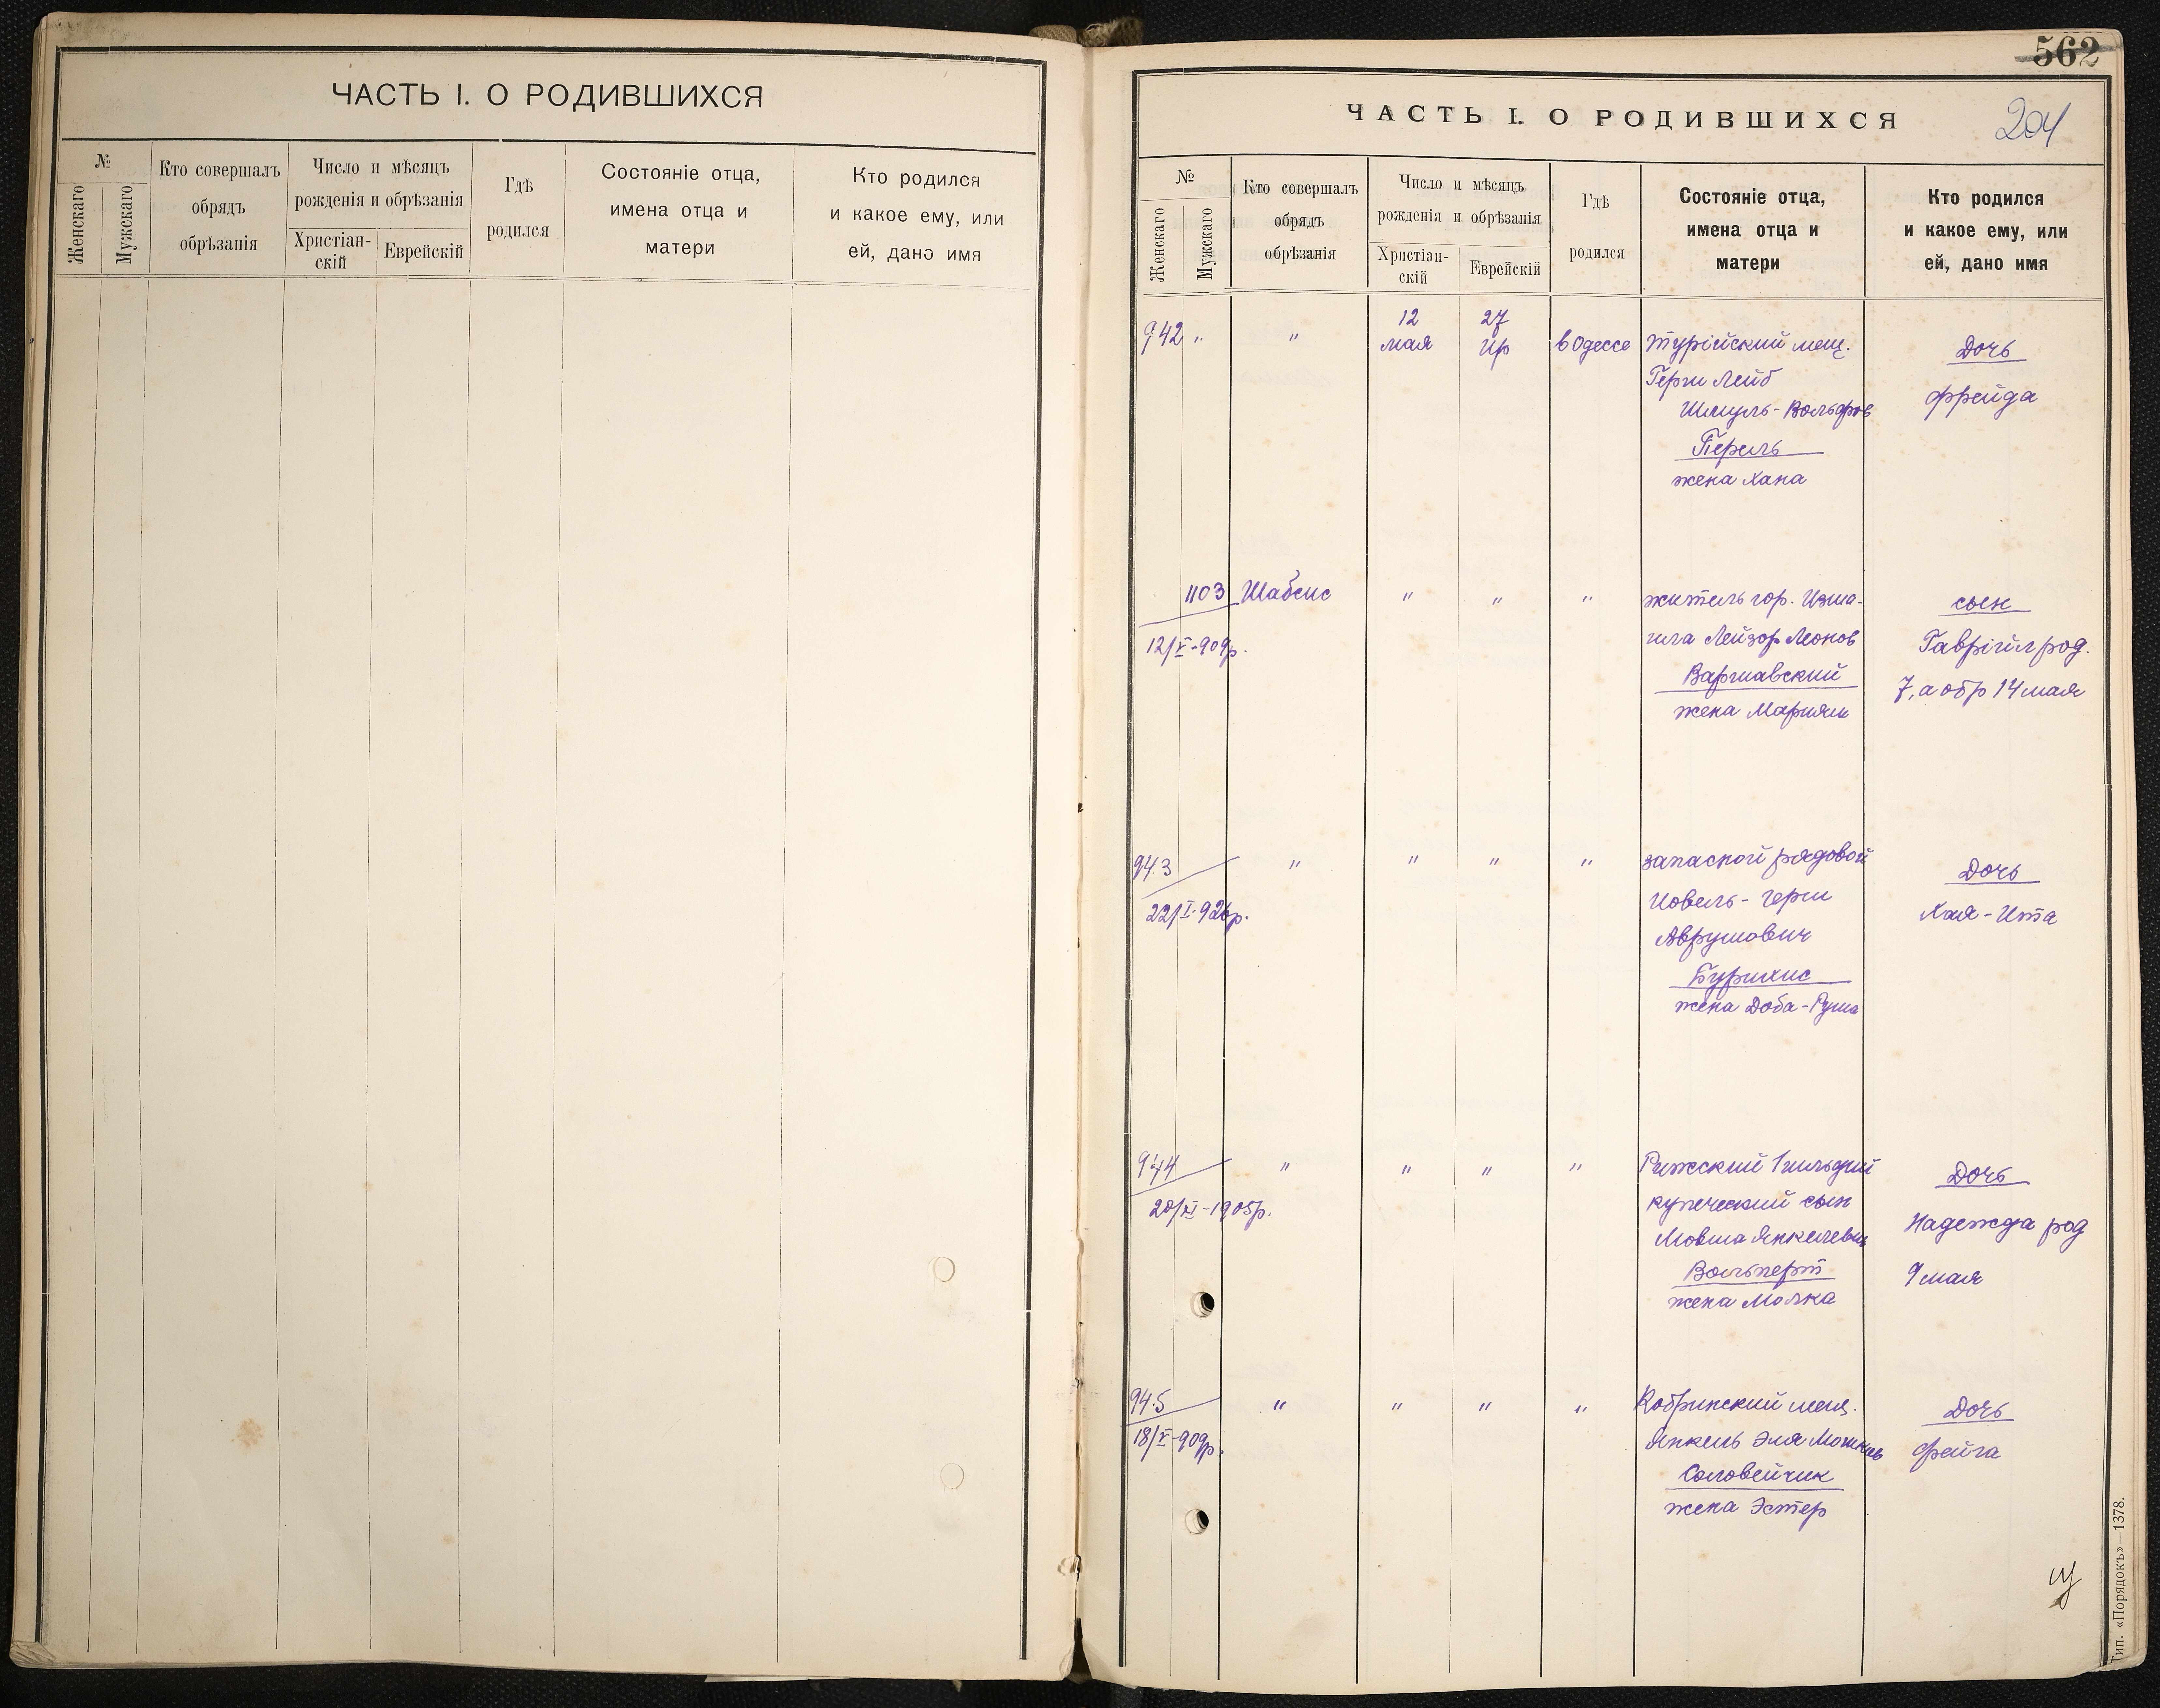 ЧАСТЬ I. О РОДИВШИХСЯ
№
Женскаго
Мужскаго
Кто совершалъ
обрядъ
обрѣзанія
Число и мѣсяцъ
рожденія и обрѣзанія
Христіан-
скій
Еврейскій
Гдѣ
родился
Состояніе отца,
имена отца и
матери
Кто родился
и какое ему, или
ей, дано имя
562
ЧАСТЬ I. О РОДИВШИХСЯ
204
№
Женскаго
Мужскаго
Кто совершалъ
обрядъ
обрѣзанія
Число и мѣсяцъ
рожденія и обрѣзанія
Христіан-
скій
Еврейскій
Гдѣ
родился
Состояніе отца,
имена отца и
матери
Кто родился
и какое ему, или
ей, дано имя
942 " "
12
мая
27
Ир
в Одессе
Турійский мещ.
Герш Лейб
Шмуль-Вольфов
Перель
жена Хана
Дочь
Фрейда
1103 Шабсис " " "
12/V-909р.
житель гор. Изма-
ила Лейзор Леонов
Варшавский
жена Мариям
сын
Гавріил род.
7, а обр 14 мая
943 " " " "
22/I-926р.
запасной рядовой
Иовель-Герш
Аврумович
жена Доба-Руша
Дочь
Хая-Ита
944 " " " "
20/XI-1905р.
Рижский 1 гильдии
купеческий сын
Мовша Янкелевич
Вольперт
жена Малка
Дочь
Надежда род
9 мая
945 " " " "
18/V-909р.
Кобринский мещ.
Янкель Эля Мошков
Соловейчик
жена Эстер
Дочь
Фейга
Тип. «Порядокъ»—1378.